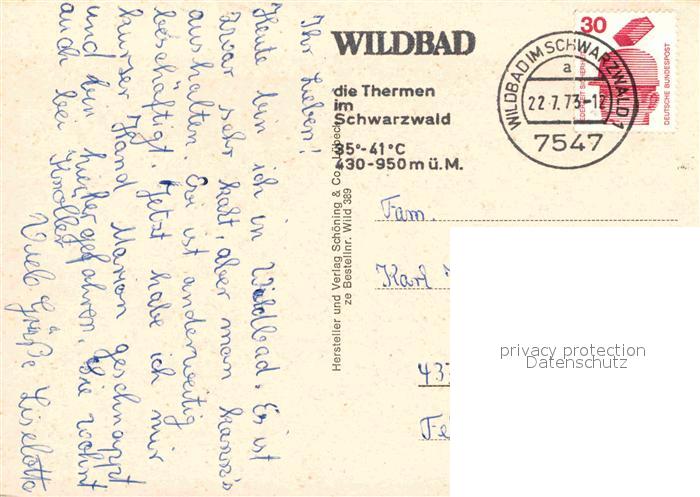 Ihr Lieben!
Heute bin ich in Wildbad. Es ist
zwar sehr kalt, aber man kann's
aushalten. Eri ist anderweitig
beschäftigt. Jetzt habe ich mir
kurzer Hand Marion geschnappt
und bin hierher gefahren. Sie wohnt
auch bei Knöller.
Viele Grüße Liselotte
WILDBAD
die Thermen
im
Schwarzwald
35°-41°C
430-950m ü.M.
Hersteller und Verlag Schöning & Co., Lübeck
ze Bestellnr. Wild 389
30
DEUTSCHE BUNDESPOST
WILDBAD IM SCHWARZWALD 1
a
22.7.73-12
7547
Fam.
Karl
437
privacy protection
Datenschutz